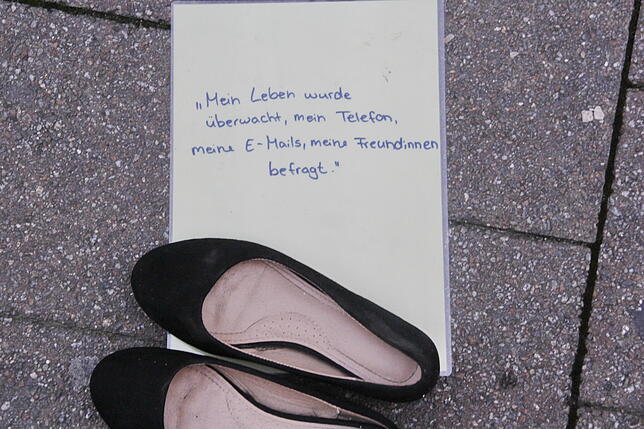 „Mein Leben wurde
überwacht, mein Telefon,
meine E-Mails, meine Freundinnen
befragt."